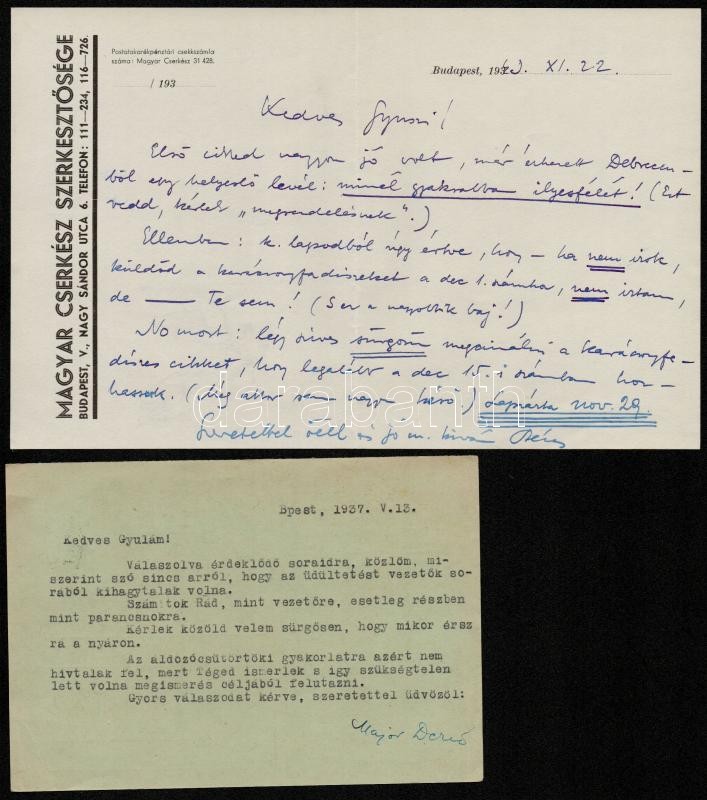 MAGYAR CSERKÉSZ SZERKESZTŐSÉGE
BUDAPEST, V., NAGY SÁNDOR UTCA 6. TELEFON: 111—234, 116—726.
Postatakarékpénztári csekkszámla
száma: Magyar Cserkész 31 428.
/ 193
Budapest, 193 XI. 22.
Kedves Gyuszi!
Első cikked nagyon jó volt, már érkezett Debrecen-
ből egy helyeslő levél: minél gyakrabban ilyesfélét! (Ezt
vedd, kérlek „megrendelésnek".)
Ellenben: k. lapodból úgy értve, hogy — ha nem írok,
küldöd a karácsonyfadíszeket a dec 1. számba, nem írtam,
de — Te sem! (S ez a nagyobbik baj!)
No most: légy szíves sürgősen megcsinálni a karácsonyfa-
díszes cikket, hogy legalább a dec 15.-i számban hoz-
hassuk. (Még akkor sem nagyon késő.) Lapzárta nov. 29.
Szeretettel ölel és jó m. kíván
darabanth
Bpest, 1937. V.13.
Kedves Gyulám!
Válaszolva érdeklődő soraidra, közlöm, mi-
szerint szó sincs arról, hogy az üdültetést vezetők so-
rából kihagytalak volna.
Számítok Rád, mint vezetőre, esetleg részben
mint parancsnokra.
Kérlek közöld velem sürgősen, hogy mikor érsz
rá a nyáron.
Az áldozócsütörtöki gyakorlatra azért nem
hívtalak fel, mert Téged ismerlek s így szükségtelen
lett volna megismerés céljából felutazni.
Gyors válaszodat kérve, szeretettel üdvözöl:
Major Dezső